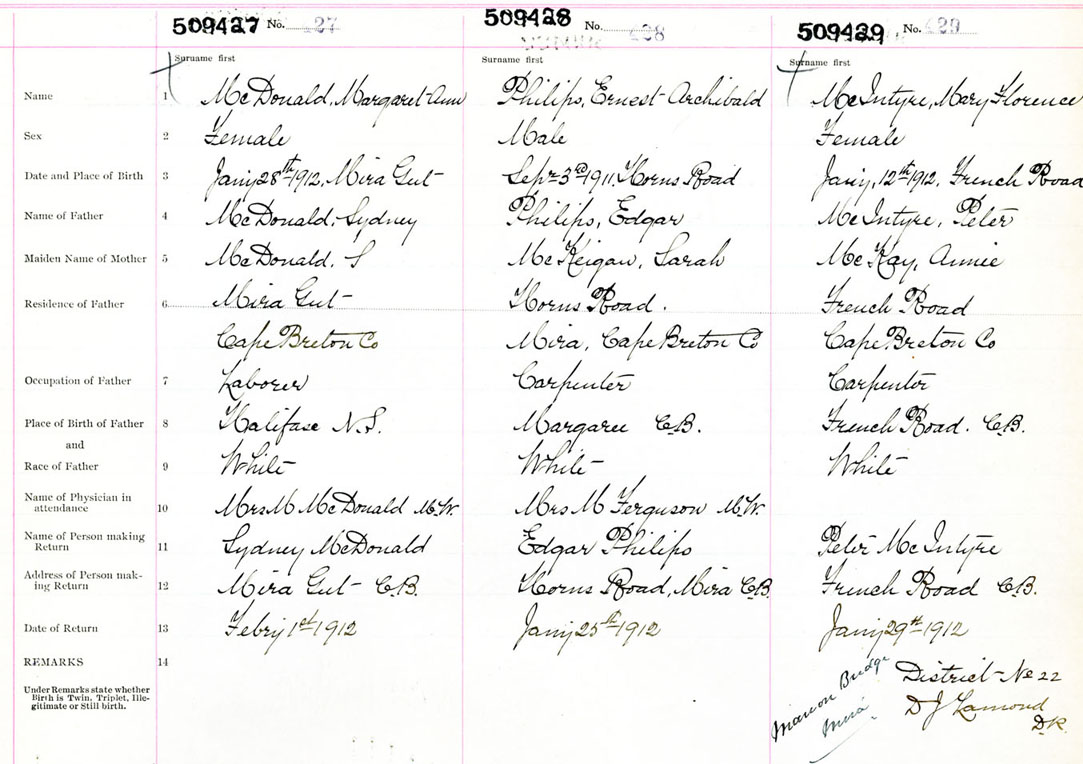 509427 No. 427 509428 No. 428 509429 No. 429
Surname first Surname first Surname first
Name 1 McDonald, Margaret Ann Philips, Ernest Archibald McIntyre, Mary Florence
Sex 2 Female Male Female
Date and Place of Birth 3 Jany 28th 1912, Mira Gut Sepr 3rd 1911, Horns Road Jany, 12th 1912, French Road
Name of Father 4 McDonald, Sydney Philips, Edgar McIntyre, Peter
Maiden Name of Mother 5 McDonald, S McKeigan, Sarah McKay, Annie
Residence of Father 6 Mira Gut Horns Road. French Road
Cape Breton Co Mira, Cape Breton Co Cape Breton Co
Occupation of Father 7 Laborer Carpenter Carpenter
Place of Birth of Father 8 Halifax N.S. Margaree C.B. French Road. C.B.
and
Race of Father 9 White White White
Name of Physician in
attendance 10 Mrs M McDonald M.W. Mrs M Ferguson M.W.
Name of Person making
Return 11 Sydney McDonald Edgar Philips Peter McIntyre
Address of Person mak-
ing Return 12 Mira Gut C.B. Horns Road, Mira C.B. French Road C.B.
Date of Return 13 Febry 1st 1912 Jany 25th 1912 Jany 29th 1912
REMARKS 14
Under Remarks state whether
Birth is Twin, Triplet, Ille-
gitimate or Still birth.
Marion Bridge
Mira
District No 22
D J Lamond
D.R.